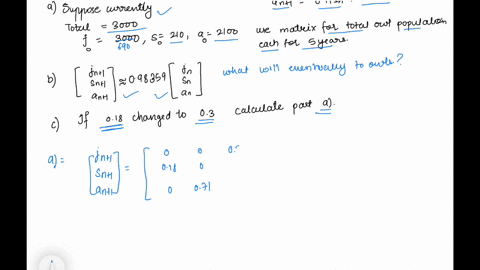 a) Suppose currently ✓
Total = 3000
j₀ = 3000, s₀ = 210, a₀ = 2100 use matrix for total owl population
690
each for 5 years.
b) [ jn+1 sn+1 an+1 ] ≈ 0.98359 [ jn sn an ] what will eventually to owls?
c) If 0.18 changed to 0.3 calculate part a).
a) = [ jn+1 sn+1 an+1 ] = [ 0 0 0.
0.18 0
0 0.71